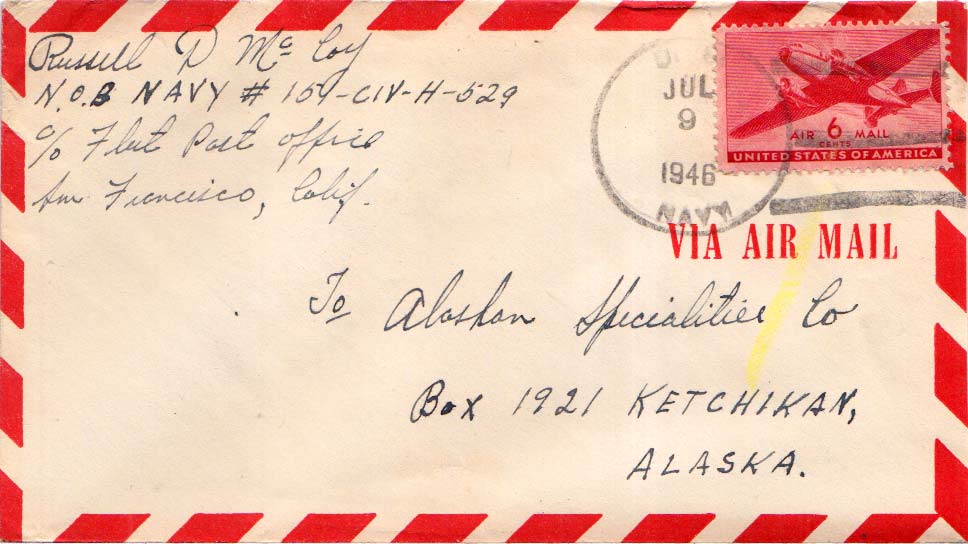 Russell D McCoy
N.O.B NAVY # 159-CIV-H-529
c/o Fleet Post Office
San Francisco, Calif.
JUL
9
1946
NAVY
AIR 6 MAIL
CENTS
UNITED STATES OF AMERICA
VIA AIR MAIL
To Alaskan Specialities Co
Box 1921 KETCHIKAN,
ALASKA.